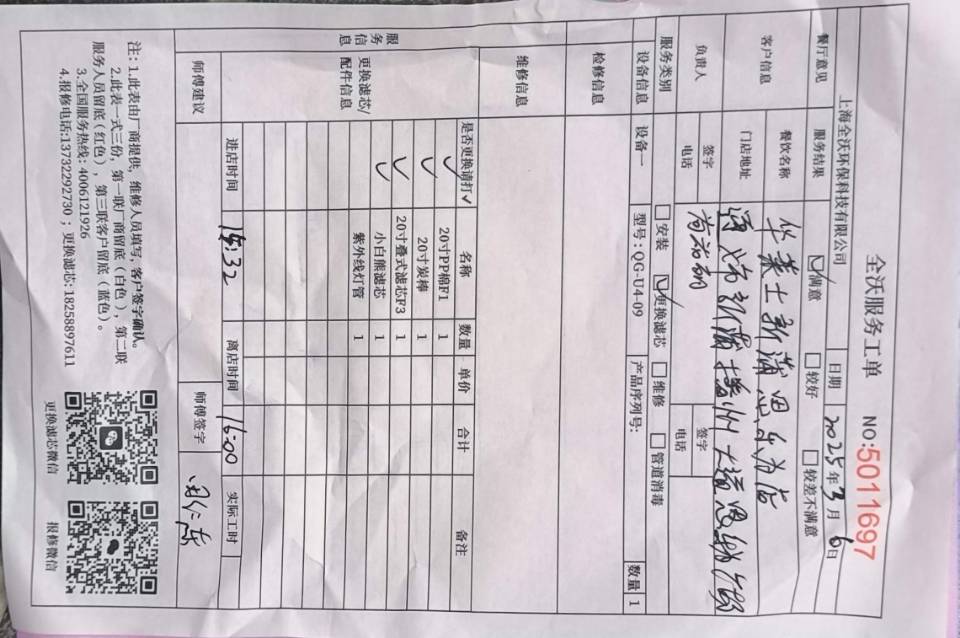 全沃服务工单 NO:5011697
上海全沃环保科技有限公司 日期 2025年3月6日
餐厅意见 服务结果 ☑满意 □较好 □较差不满意
客户信息 餐饮名称 华莱士新蒲恩纳店
门店地址 遵义新蒲播州大道恩纳
负责人 签字 签字
电话 电话
服务类别 □安装 ☑更换滤芯 □维修 □管道消毒
设备信息 设备一 型号:QG-U4-09 产品序列号: 数量 1
检修信息
维修信息
服务信息 更换滤芯/配件信息 是否更换请打√ 名称 数量 单价 合计 备注
√ 20寸PP棉F1 1
√ 20寸炭棒 1
√ 20寸叠式滤芯F3 1
√ 小白熊滤芯 1
紫外线灯管 1
进店时间 15:32 离店时间 16:00 实际工时
师傅建议 师傅签字
注: 1.此表由厂商提供, 维修人员填写, 客户签字确认。
2.此表一式三份, 第一联厂商留底(白色), 第二联
服务人员留底(红色), 第三联客户留底(蓝色)。
3.全国服务热线: 4006121926
4.报修电话:13732292730 ; 更换滤芯: 18258897611
更换滤芯微信 报修微信